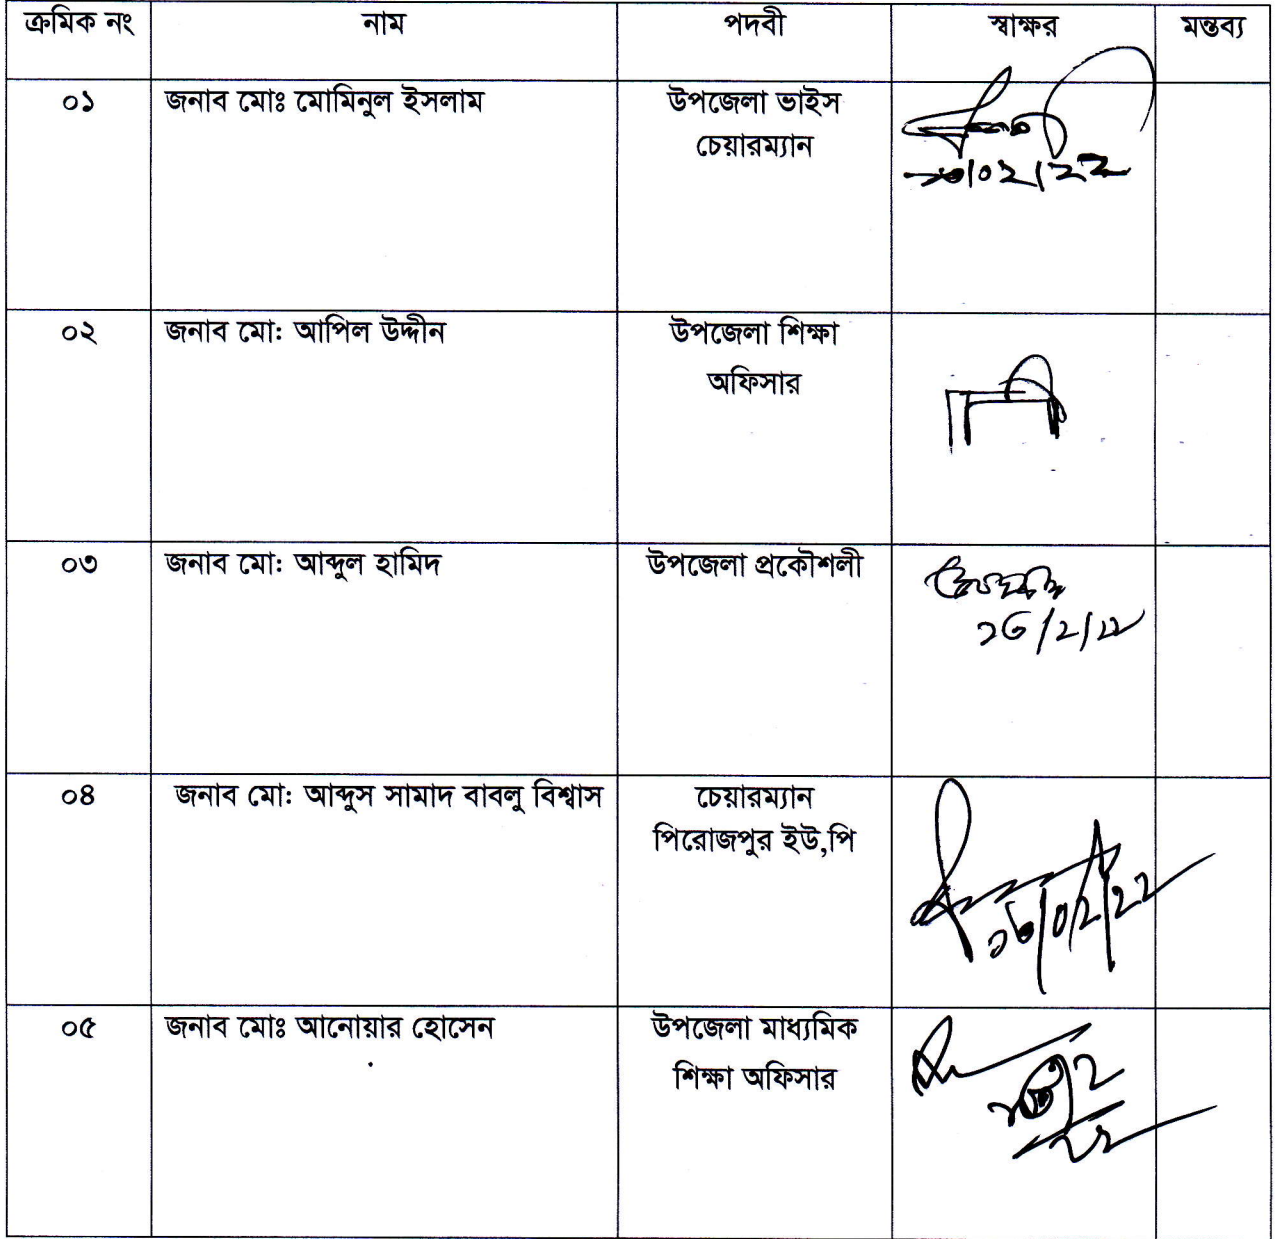 ক্রমিক নং নাম পদবী স্বাক্ষর মন্তব্য
০১ জনাব মোঃ মোমিনুল ইসলাম উপজেলা ভাইস
চেয়ারম্যান
০২ জনাব মো: আপিল উদ্দীন উপজেলা শিক্ষা
অফিসার
০৩ জনাব মো: আব্দুল হামিদ উপজেলা প্রকৌশলী
০৪ জনাব মো: আব্দুস সামাদ বাবলু বিশ্বাস চেয়ারম্যান
পিরোজপুর ইউ,পি
০৫ জনাব মোঃ আনোয়ার হোসেন উপজেলা মাধ্যমিক
শিক্ষা অফিসার